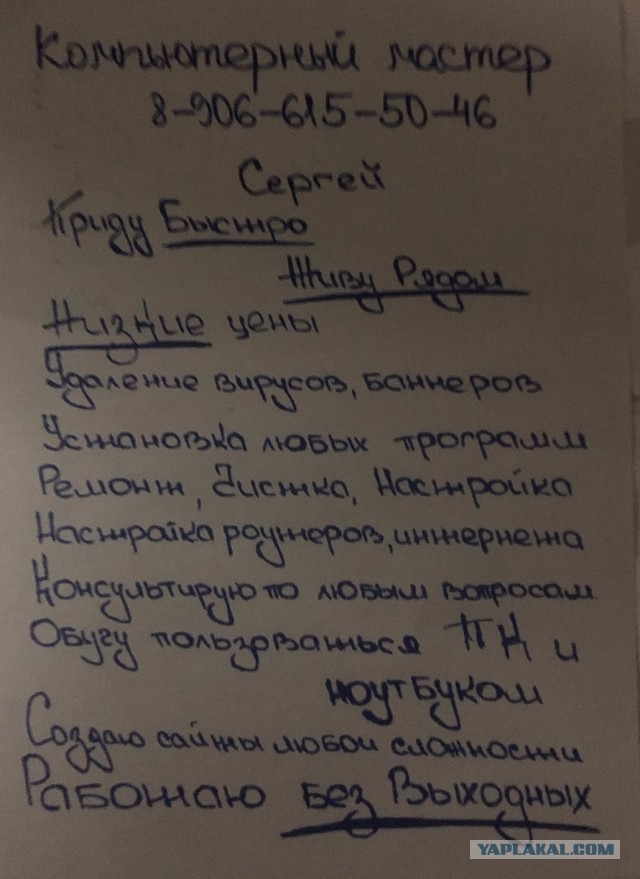 Компьютерный мастер
8-906-615-50-46
Сергей
Приду Быстро
Живу Рядом
Низкие цены
Удаление вирусов, баннеров
Установка любых программ
Ремонт, Чистка, Настройка
Настрайка роутеров, интернета
Консультирую по любым вопросам
Обучу пользоваться ПК и
ноутбуком
Создаю сайты любой сложности
Работаю Без Выходных
YAPLAKAL.COM